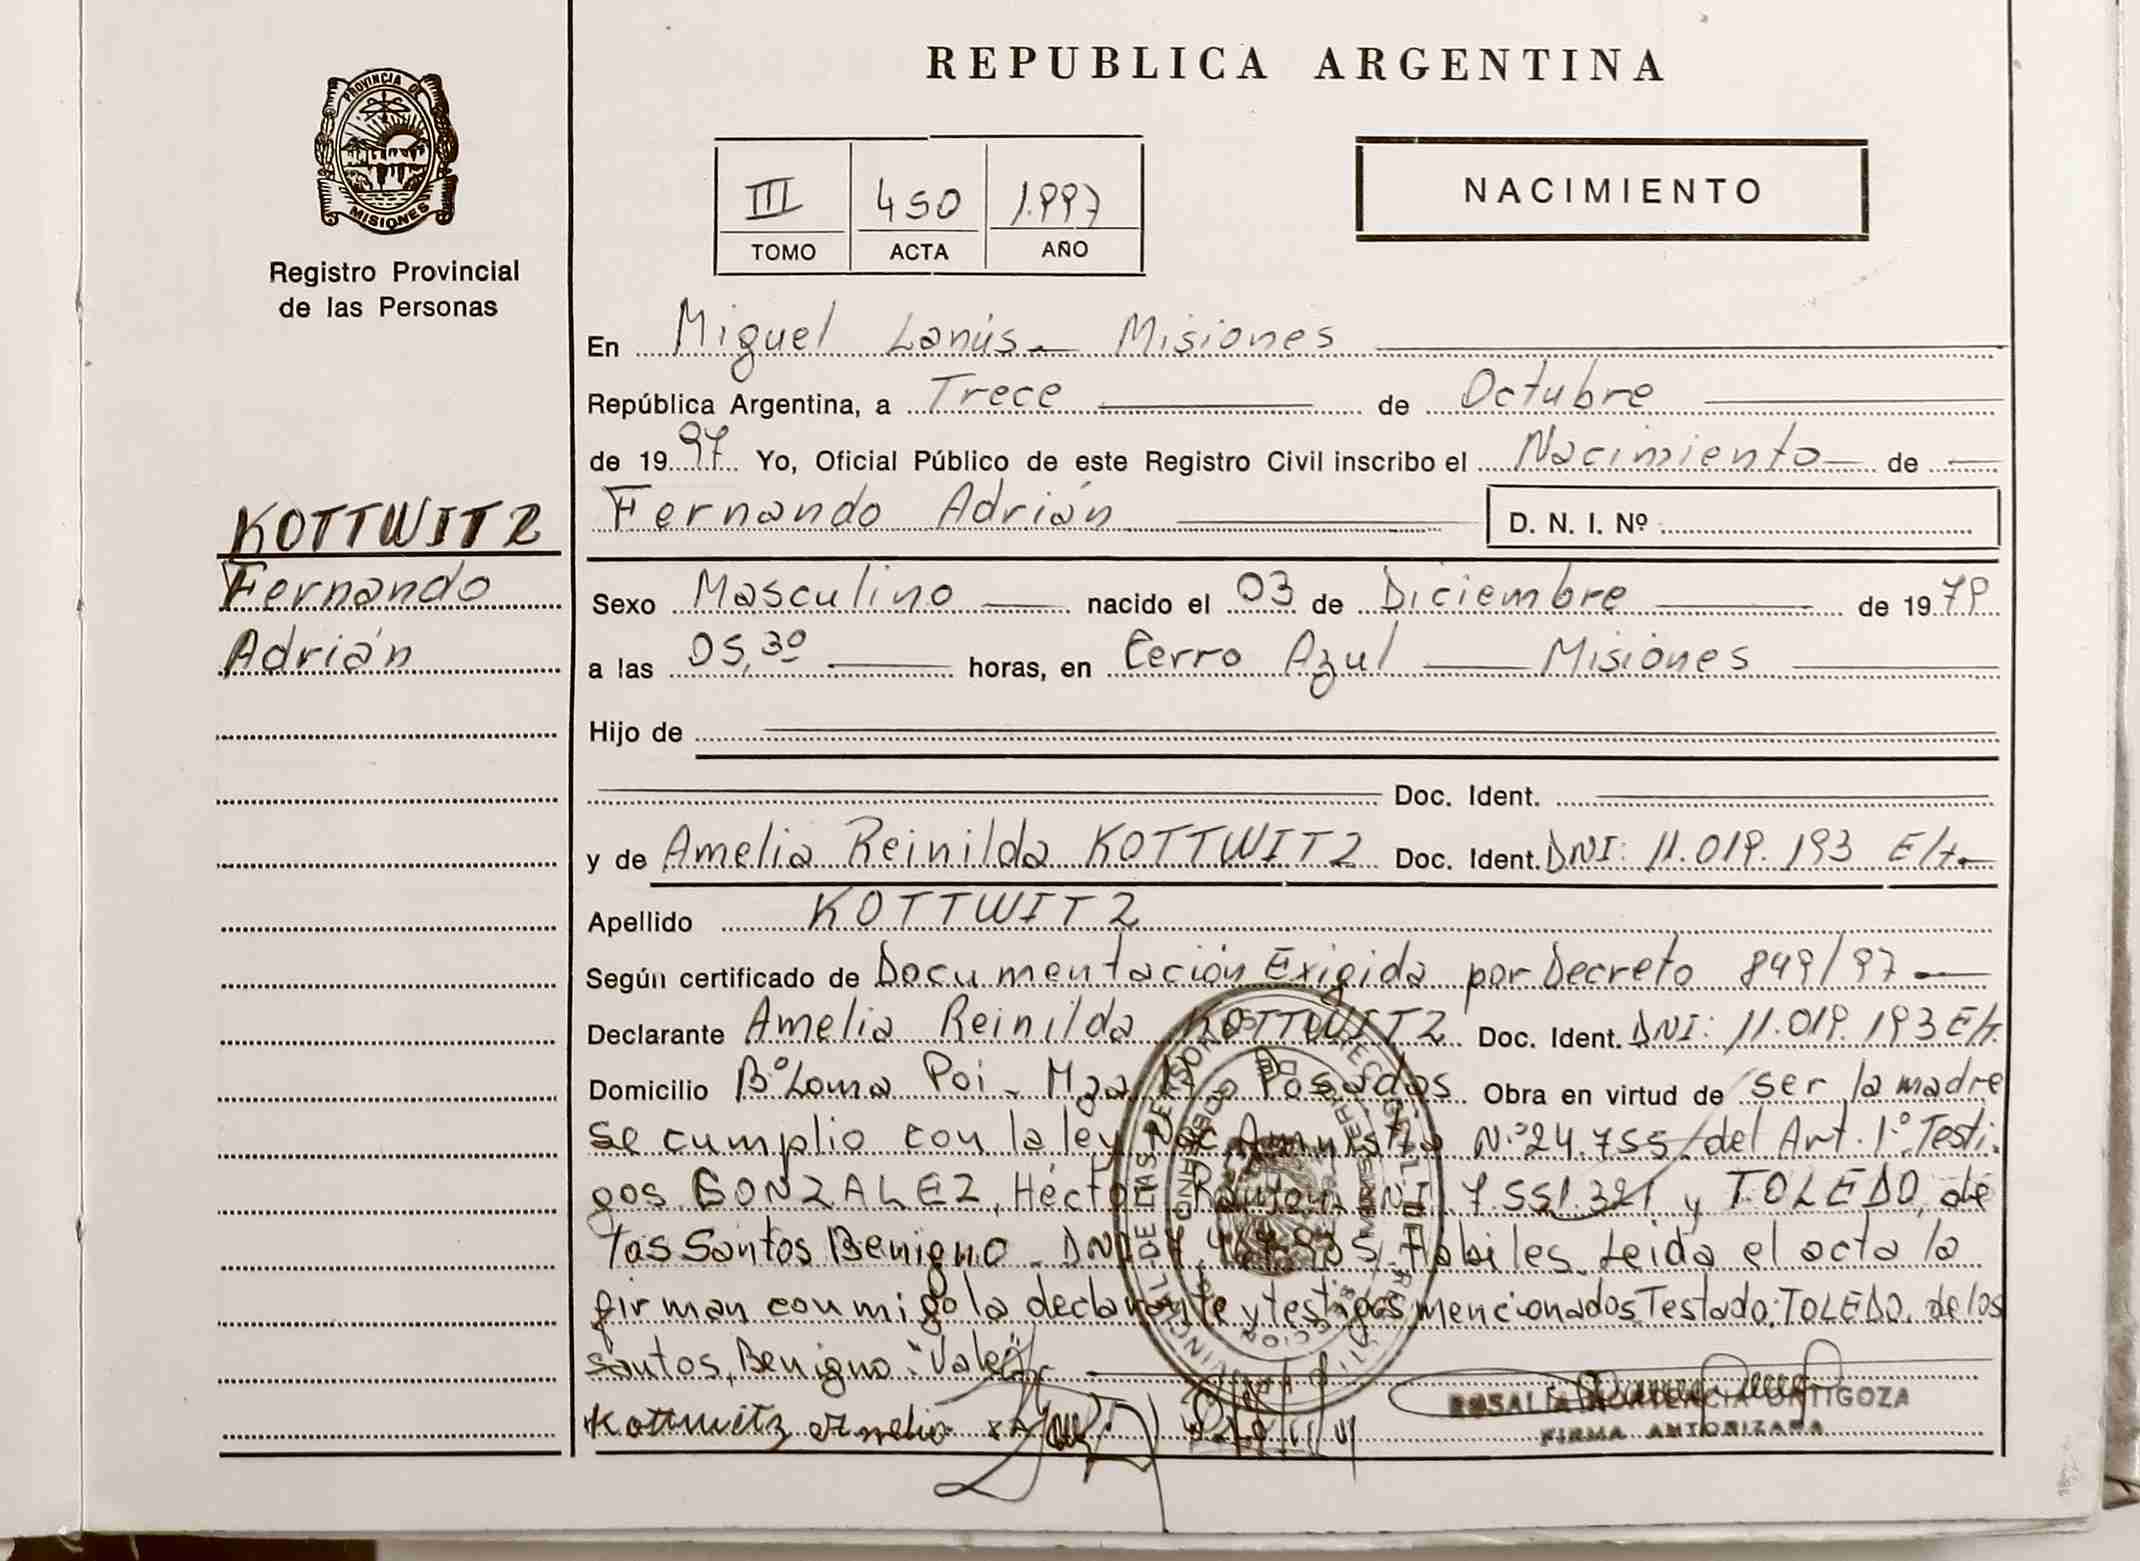 PROVINCIA DE
MISIONES
Registro Provincial
de las Personas
KOTTWITZ
Fernando
Adrián
REPUBLICA ARGENTINA
III 450 1.997
TOMO ACTA AÑO
NACIMIENTO
En Miguel Lanús - Misiones
República Argentina, a Trece de Octubre
de 1997 Yo, Oficial Público de este Registro Civil inscribo el Nacimiento de
Fernando Adrián D. N. I. Nº
Sexo Masculino nacido el 03 de Diciembre de 1979
a las 05,30 horas, en Cerro Azul Misiones
Hijo de
Doc. Ident.
y de Amelia Reinilda KOTTWITZ Doc. Ident. DNI: 11.019.193
Apellido KOTTWITZ
Según certificado de Documentación Exigida por Decreto 849/97
Declarante Amelia Reinilda KOTTWITZ Doc. Ident. DNI: 11.019.193
Domicilio Bº Loma Poi - Mza Posadas Obra en virtud de ser la madre
se cumplio con la ley Amnistia N.º 24.755 del Art. 1.º Testi-
gos GONZALEZ, Héctor Ramon DNI 7.551.321 y TOLEDO, de
los Santos Benigno - DNI Habiles. Leida el acta la
firman conmigo la declarante y testigos mencionados Testado: TOLEDO, de los
Santos, Benigno: "Vale"
Kottwitz Amelia
ROSALIA HORTENCIA ORTIGOZA
FIRMA AUTORIZADA